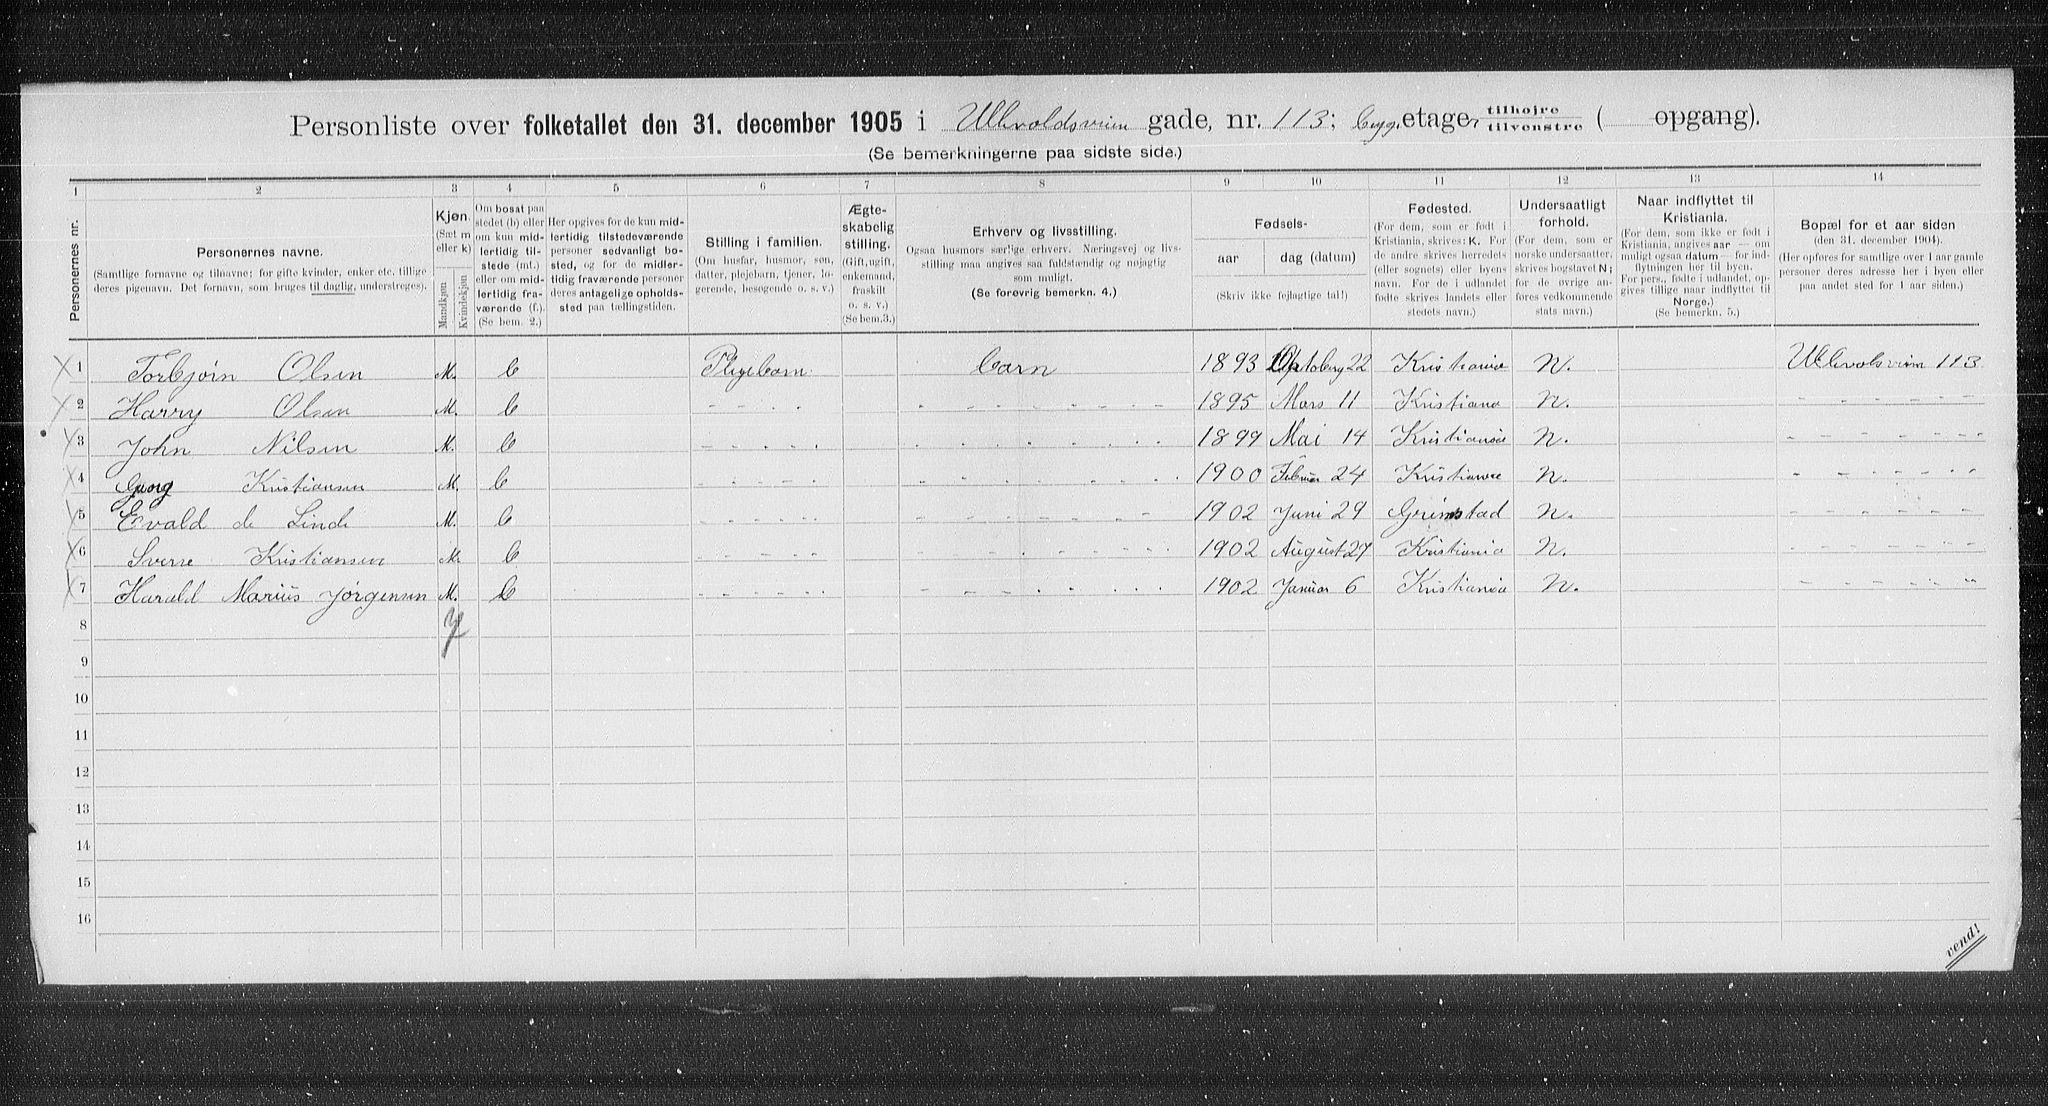 Personliste over folketallet den 31. december 1905 i Ullevoldsveien gade, nr. 113; byg. etage, tilhøire tilvenstre ( opgang).
(Se bemerkningerne paa sidste side.)
1 2 3 4 5 6 7 8 9 10 11 12 13 14
Personernes nr.
Personernes navne.
(Samtlige fornavne og tilnavne; for gifte kvinder, enker etc. tillige
deres pigenavn. Det fornavn, som bruges til daglig, understreges).
Kjøn.
(Sæt m
eller k)
Mandkjøn
Kvindekjøn
Om bosat paa
stedet (b) eller
om kun mid-
lertidig til-
stede (mt.)
eller om mid-
lertidig fra-
værende (f.).
(Se bem. 2.)
Her opgives for de kun mid-
lertidig tilstedeværende
personer sedvanligt bo-
sted, og for de midler-
tidig fraværende personer
deres antagelige opholds-
sted paa tællingstiden.
Stilling i familien.
(Om husfar, husmor, søn,
datter, plejebarn, tjener, lo-
gerende, besøgende o. s. v.)
Ægte-
skabelig
stilling.
(Gift, ugift,
enkemand,
fraskilt
o. s. v.)
(Se bem.3.)
Erhverv og livsstilling.
Ogsaa husmors særlige erhverv. Næringsvej og livs-
stilling maa angives saa fuldstændig og nøjagtig
som muligt.
(Se forøvrig bemerkn. 4.)
Fødsels-
aar
dag (datum)
(Skriv ikke fejlagtige tal!)
Fødested.
(For dem, som er født i
Kristiania, skrives: K. For
de andre skrives herredets
(eller sognets) eller byens
navn. For de i udlandet
fødte skrives landets eller
stedets navn.)
Undersaatligt
forhold.
(For dem, som er
norske undersaatter,
skrives bogstavet N;
for de øvrige an-
føres vedkommende
stats navn.)
Naar indflyttet til
Kristiania.
(For dem, som ikke er født i
Kristiania, angives aar — om
muligt ogsaa datum — for ind-
flytningen her til byen.
For pers., fødte i udlandet, op-
gives tillige naar indflyttet til
Norge.)
(Se bemerkn. 5.)
Bopæl for et aar siden
(den 31. december 1904).
(Her opføres for samtlige over 1 aar gamle
personer deres adresse her i byen eller
paa andet sted for 1 aar siden.)
1 Torbjørn Olsen M. b Plejebarn barn 1893 22 Kristiania N. 113
2 Harry Olsen M. b - - - - - - - - 1895 Mars 11 Kristiania N. - - - -
3 John Nilsen M. b - - - - - - - - 1899 Mai 14 Kristiania N. - - - -
4 Georg Kristiansen M. b - - - - - - - - 1900 Februar 24 Kristiania N. - - - -
5 Evald de Linde M. b - - - - - - - - 1902 Juni 29 Grimstad N. - - - -
6 Sverre Kristiansen M. b - - - - - - - - 1902 August 27 Kristiania N. - - - -
7 Harald Marius Jørgensen M. b - - - - - - - - 1902 Januar 6 Kristiania N. - - - -
8
9
10
11
12
13
14
15
16
vend!